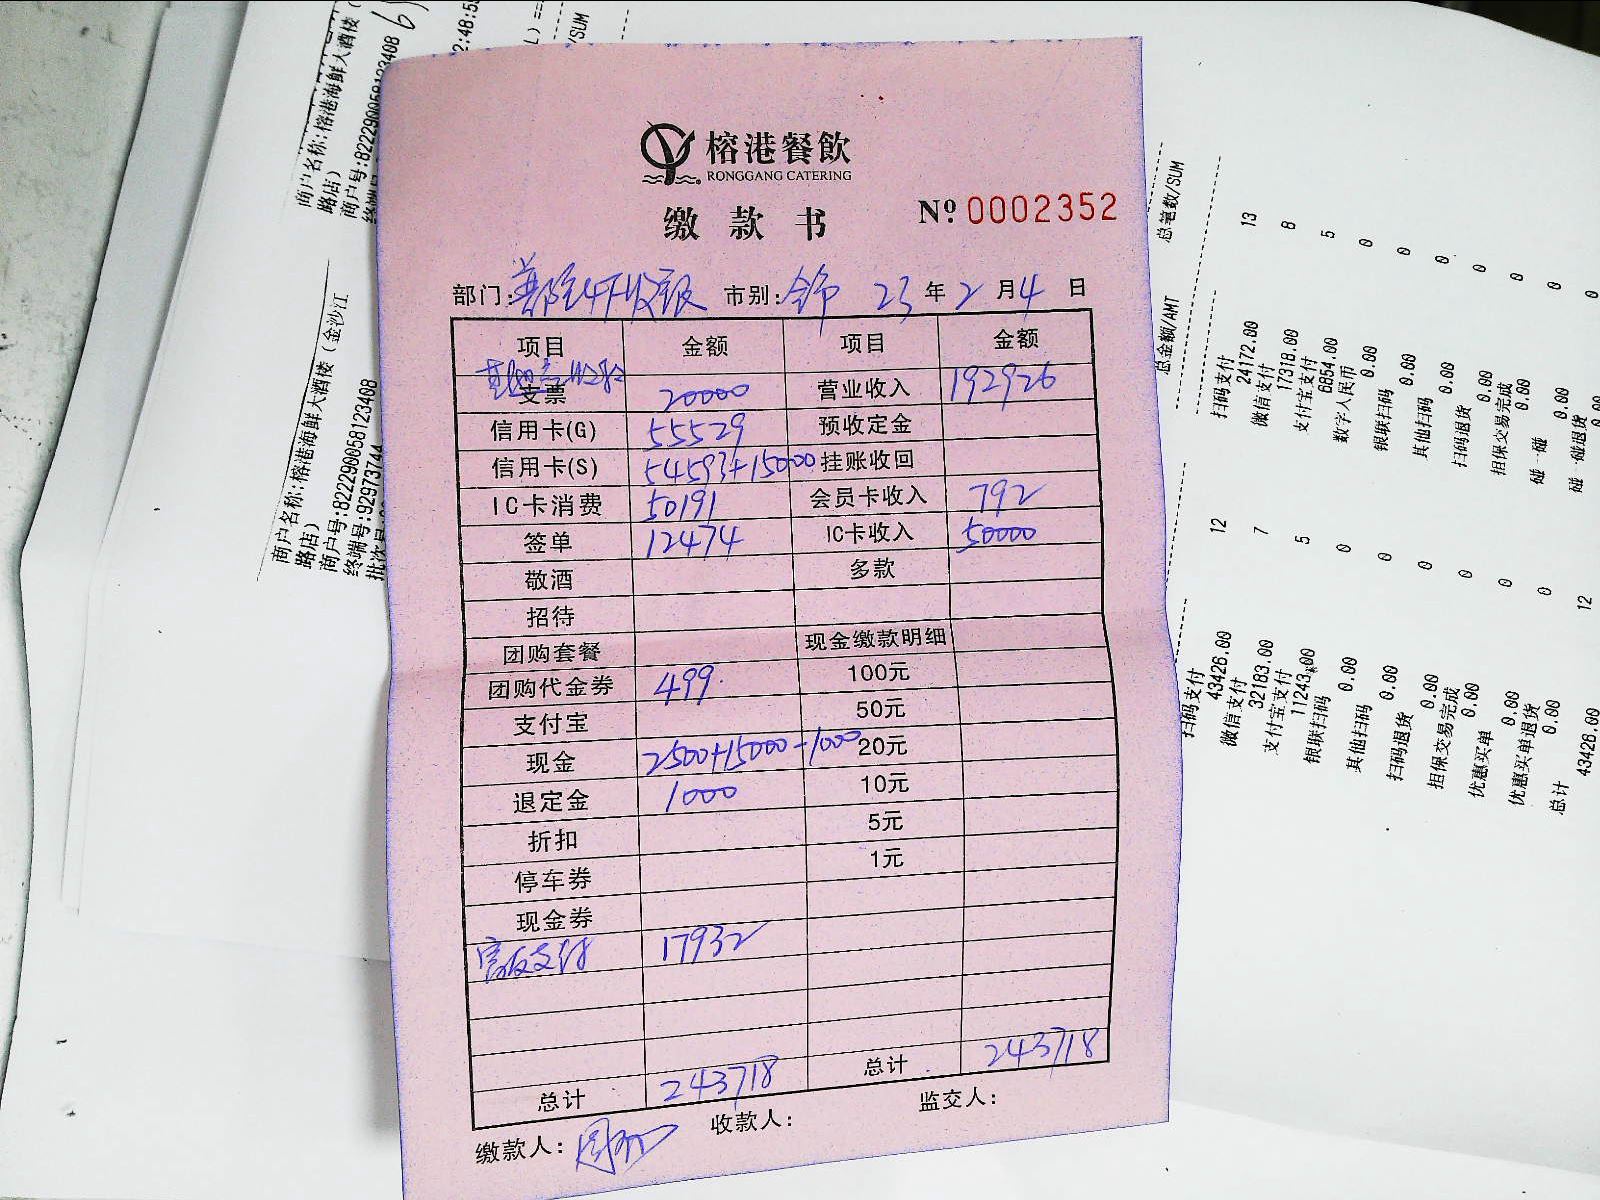 榕港餐飲
RONGGANG CATERING
缴款书
№ 0002352
部门: 市别: 23 年 2 月 4 日
项目 金额 项目 金额
支票 20000 营业收入 192926
信用卡(G) 55529 预收定金
信用卡(S) 54593+15000 挂账收回
IC卡消费 50191 会员卡收入 792
签单 12474 IC卡收入 50000
敬酒 多款
招待
团购套餐 现金缴款明细
团购代金券 499 100元
支付宝 50元
现金 2500+15000-1000 20元
退定金 1000 10元
折扣 5元
停车券 1元
现金券
支付 17932
总计 243718 总计 243718
缴款人: 收款人: 监交人:
商户名称:榕港海鲜大酒楼(
路店)
商户号:822290058123408
2:48:5
/SUM
商户名称:榕港海鲜大酒楼(金沙江
路店)
商户号:822290058123408
终端号:92973744
总金额/AMT 总笔数/SUM
扫码支付
24172.00 13
微信支付
17318.00 8
支付宝支付
6854.00 5
数字人民币
0.00 0
银联扫码
0.00 0
其他扫码
0.00 0
扫码退货
0.00 0
担保交易完成
0.00 0
碰一碰
0.00 0
碰一碰退货
0.00 0
扫码支付
43426.00 12
微信支付
32183.00 7
支付宝支付
11243.00 5
银联扫码
0.00 0
其他扫码
0.00 0
扫码退货
0.00 0
担保交易完成
0.00 0
优惠买单
0.00 0
优惠买单退货
0.00 0
总计
43426.00 12